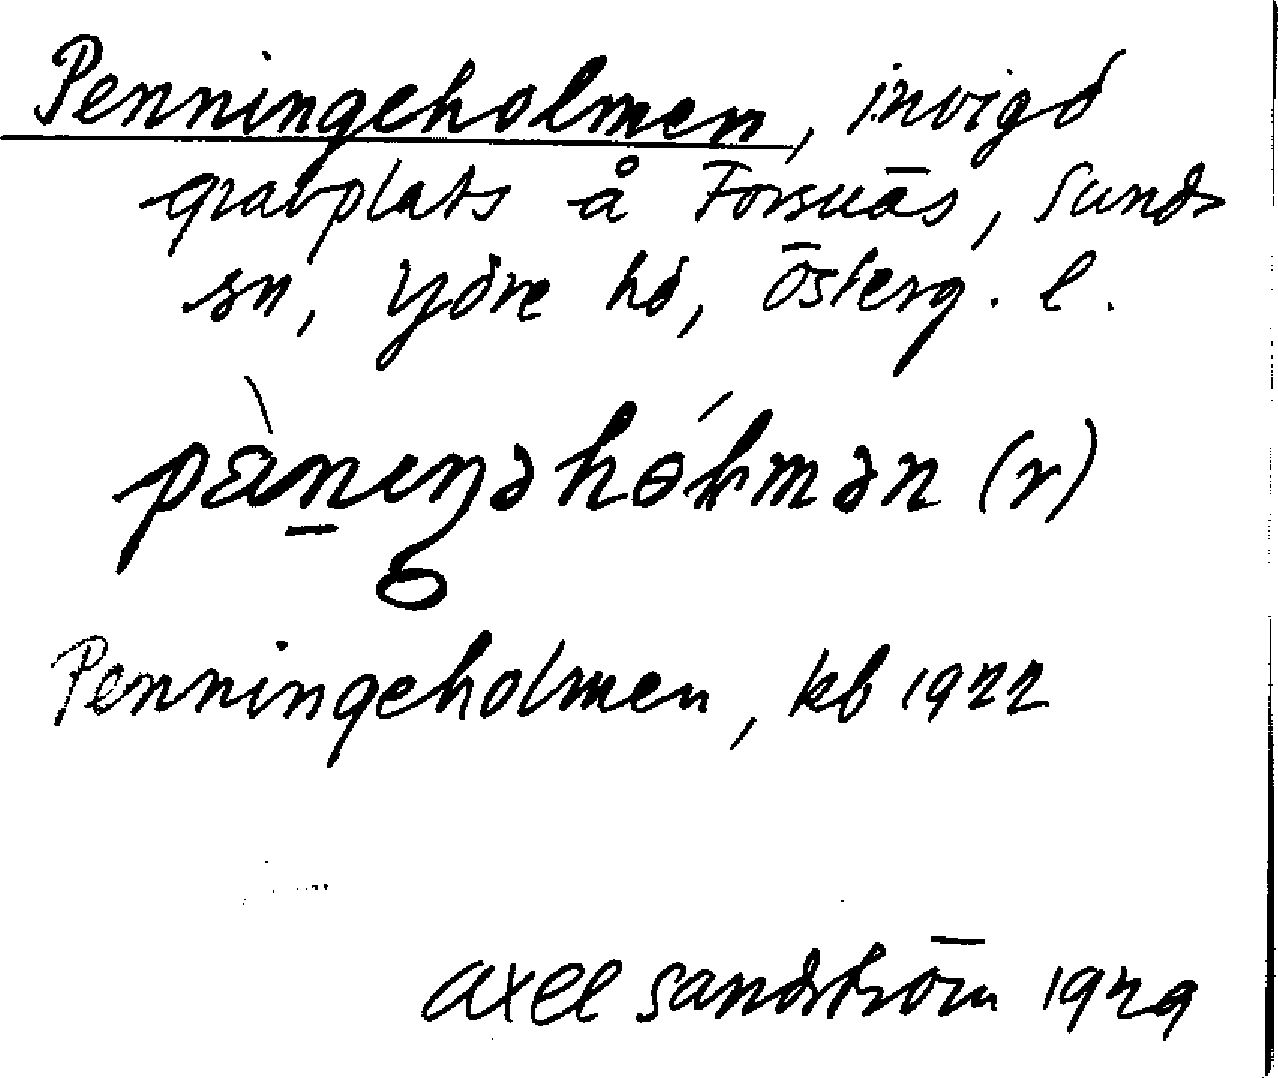 Penningeholmen, invigd
gravplats å Forsnäs, Sunds
sn, Ydre hd, Österg. l.
(r)
Penningeholmen, kb 1922
Axel Sandström 1929